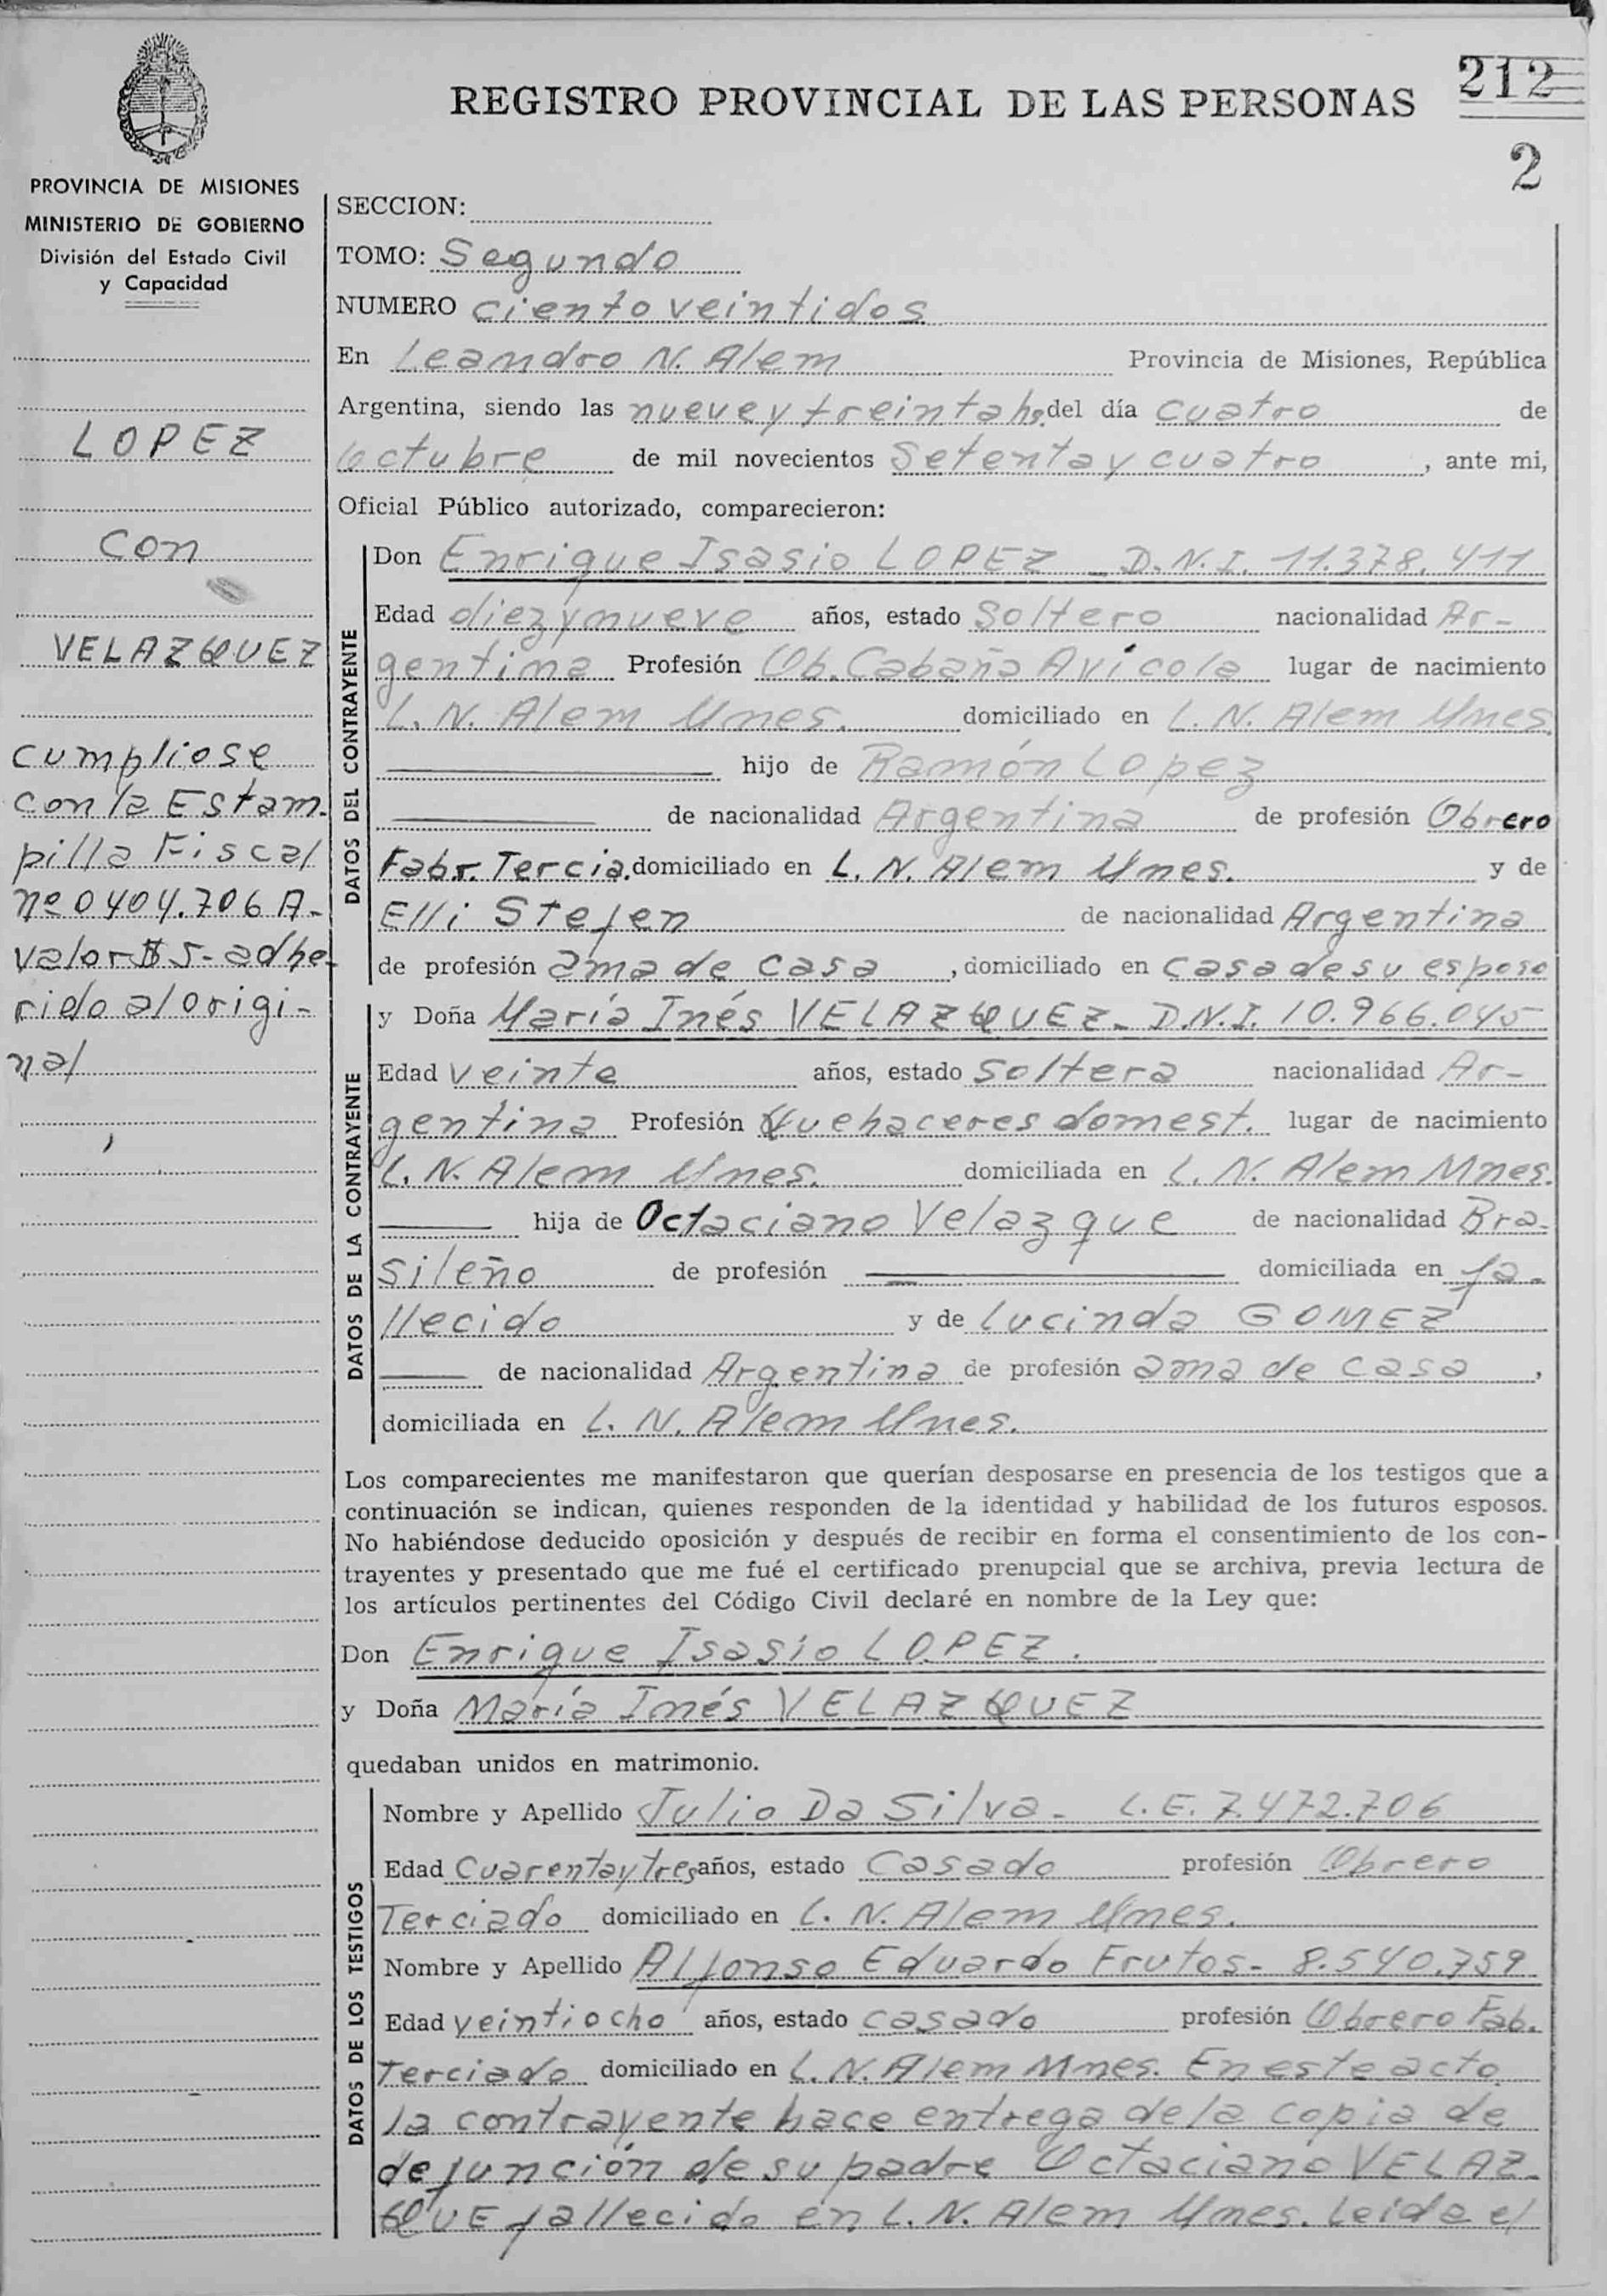 212
REGISTRO PROVINCIAL DE LAS PERSONAS
2
PROVINCIA DE MISIONES
MINISTERIO DE GOBIERNO
División del Estado Civil
y Capacidad
LOPEZ
con
VELAZQUEZ
cumpliose
con la Estam-
pilla Fiscal
nº 0404.706 A-
valor $ 5- adhe-
rido al origi-
nal
SECCION:
TOMO: Segundo
NUMERO ciento veintidos
En Leandro N. Alem Provincia de Misiones, República
Argentina, siendo las nueve y treinta hs. del día cuatro de
octubre de mil novecientos Setenta y cuatro, ante mi,
Oficial Público autorizado, comparecieron:
DATOS DEL CONTRAYENTE
Don Enrique Isasio LOPEZ - D.N.I. 11.378.411
Edad diez y nueve años, estado Soltero nacionalidad Ar-
gentina Profesión Ob. Cabaña Avícola lugar de nacimiento
L. N. Alem Mnes. domiciliado en L. N. Alem Mnes
hijo de Ramón Lopez
de nacionalidad Argentina de profesión Obrero
Fabr. Tercia. domiciliado en L. N. Alem Mnes. y de
Elli Stefen de nacionalidad Argentina
de profesión ama de casa, domiciliado en casa de su esposo
DATOS DE LA CONTRAYENTE
y Doña María Inés VELAZQUEZ - D.N.I. 10.966.045
Edad veinte años, estado Soltera nacionalidad Ar-
gentina Profesión Quehaceres domest. lugar de nacimiento
L. N. Alem Mnes. domiciliada en L. N. Alem Mnes.
hija de Octaciano Velazque de nacionalidad Bra-
sileño de profesión domiciliada en fa-
llecido y de Lucinda GOMEZ
de nacionalidad Argentina de profesión ama de casa,
domiciliada en L. N. Alem Mnes.
Los comparecientes me manifestaron que querían desposarse en presencia de los testigos que a
continuación se indican, quienes responden de la identidad y habilidad de los futuros esposos.
No habiéndose deducido oposición y después de recibir en forma el consentimiento de los con-
trayentes y presentado que me fué el certificado prenupcial que se archiva, previa lectura de
los artículos pertinentes del Código Civil declaré en nombre de la Ley que:
Don Enrique Isasio LOPEZ.
y Doña María Inés VELAZQUEZ
quedaban unidos en matrimonio.
DATOS DE LOS TESTIGOS
Nombre y Apellido Julio Da Silva - L.E. 7.472.706
Edad Cuarenta y tres años, estado Casado profesión Obrero
Terciado domiciliado en L. N. Alem Mnes.
Nombre y Apellido Alfonso Eduardo Frutos - 8.540.759
Edad veintiocho años, estado casado profesión Obrero Fab.
Terciado domiciliado en L. N. Alem Mnes. En este acto
la contrayente hace entrega de la copia de
defunción de su padre Octaciano VELAZ-
QUE fallecido en L. N. Alem Mnes. Leida el